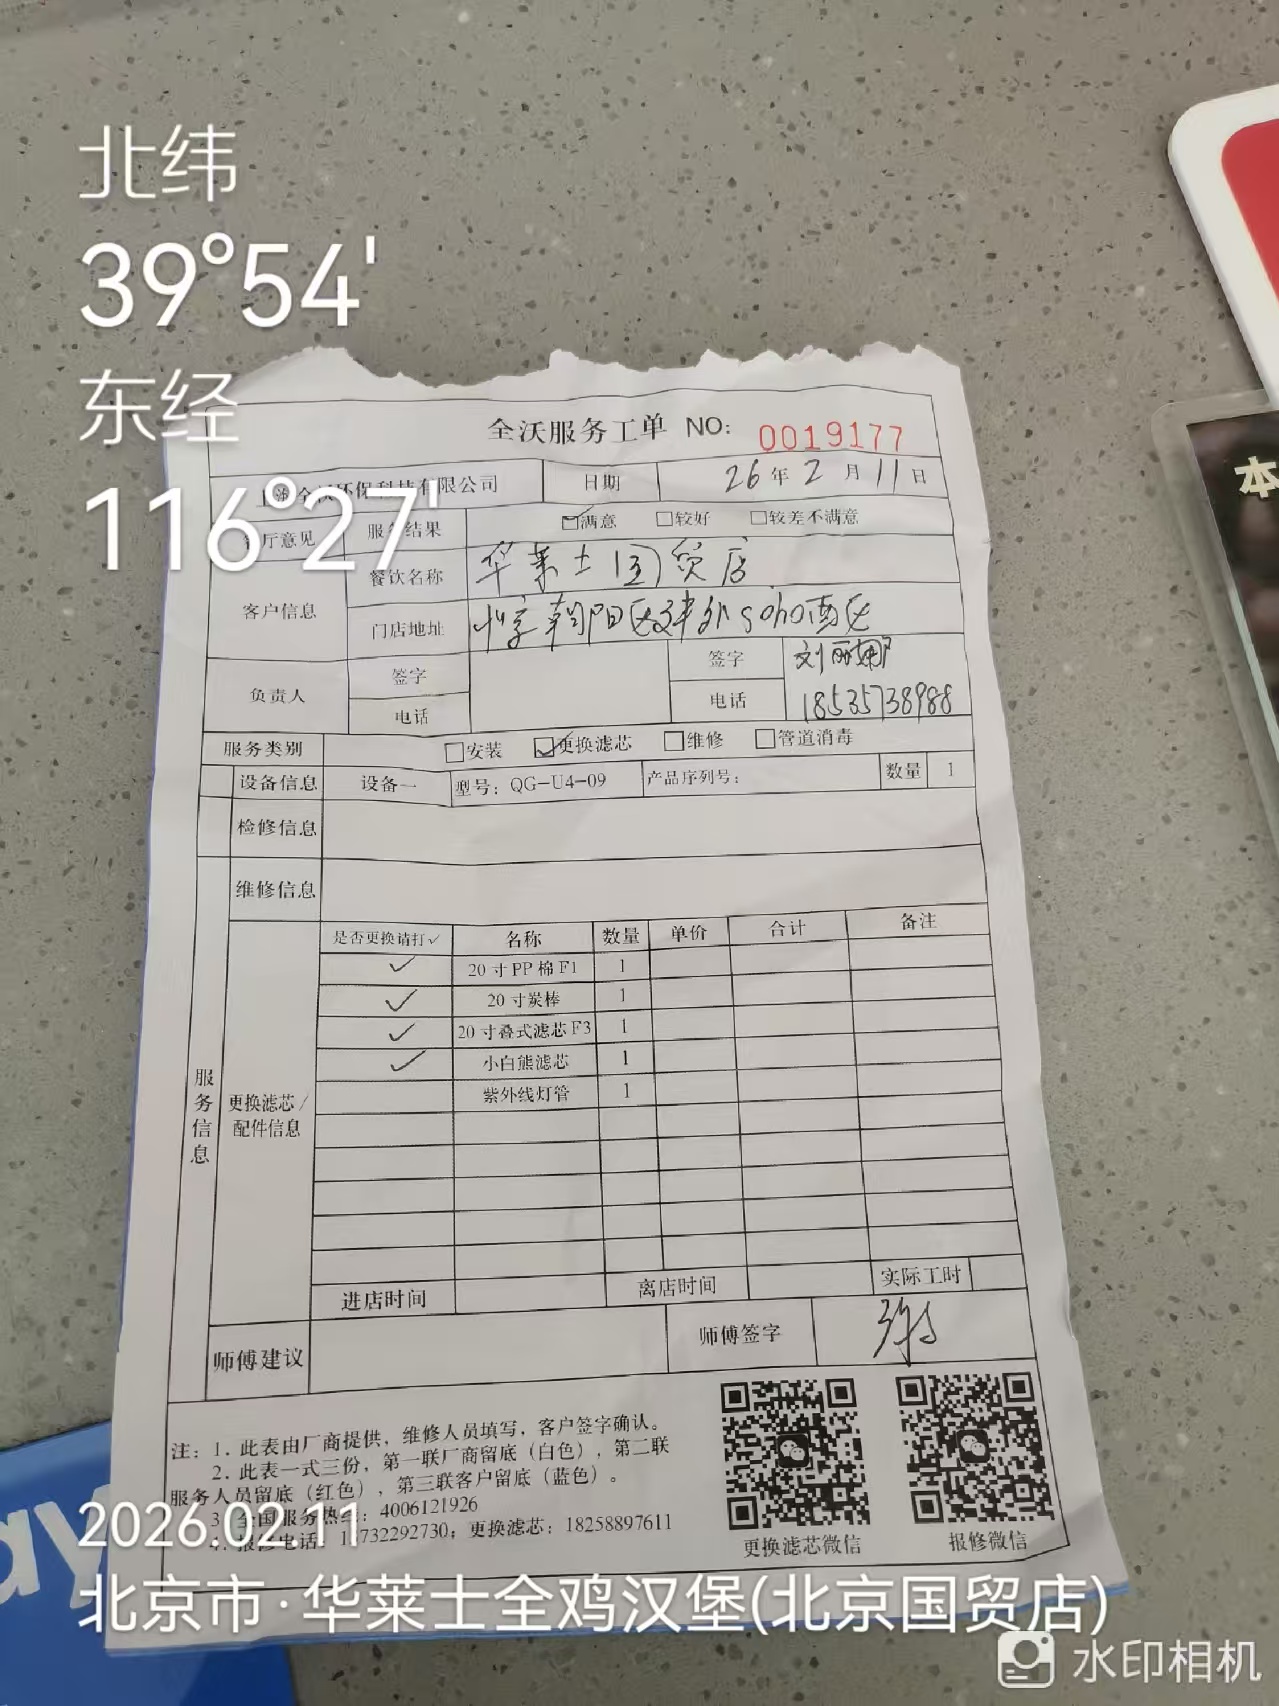 北纬
39°54'
东经
116°27'
全沃服务工单 NO: 0019177
上海全沃环保科技有限公司 日期 26年2月11日
餐厅意见 服务结果 ☑满意 □较好 □较差不满意
客户信息 餐饮名称 华莱士国贸店
门店地址 北京朝阳区建外soho西区
负责人 签字 签字 刘丽娜
电话 电话 18535738988
服务类别 □安装 ☑更换滤芯 □维修 □管道消毒
设备信息 设备一 型号: QG-U4-09 产品序列号: 数量 1
检修信息
维修信息
服务信息
更换滤芯/配件信息
是否更换请打✓ 名称 数量 单价 合计 备注
✓ 20寸PP棉F1 1
✓ 20寸炭棒 1
✓ 20寸叠式滤芯F3 1
✓ 小白熊滤芯 1
紫外线灯管 1
进店时间 离店时间 实际工时
师傅建议 师傅签字
注: 1. 此表由厂商提供, 维修人员填写, 客户签字确认。
2. 此表一式三份, 第一联厂商留底(白色), 第二联
服务人员留底(红色), 第三联客户留底(蓝色)。
3. 全国服务热线: 4006121926
4. 报修电话: 732292730; 更换滤芯: 18258897611
更换滤芯微信 报修微信
2026.02.11
北京市·华莱士全鸡汉堡(北京国贸店)
水印相机
本
ay